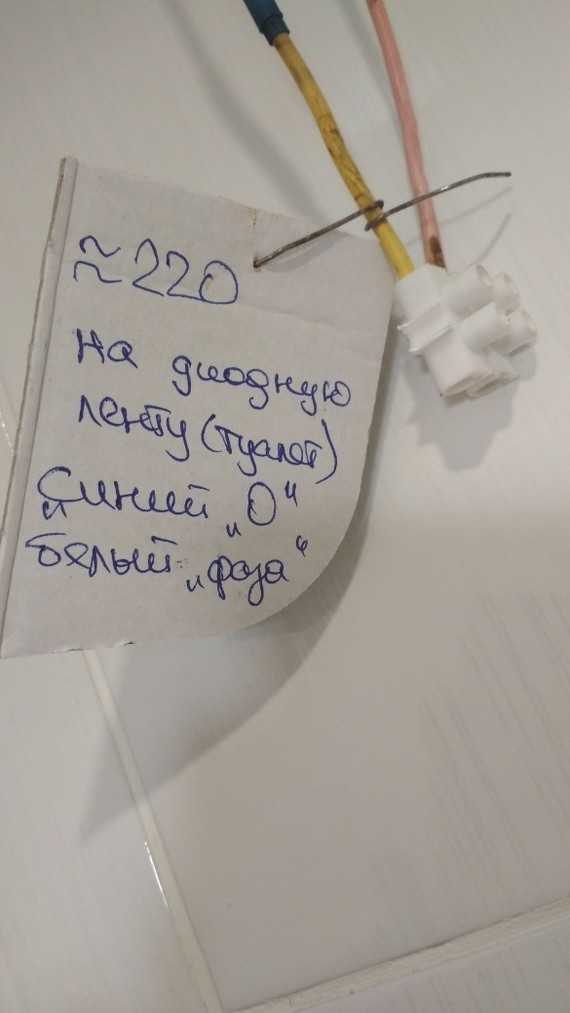 ≈220
на диодную
ленту (туалет)
Синий „0“
белый „фаза“